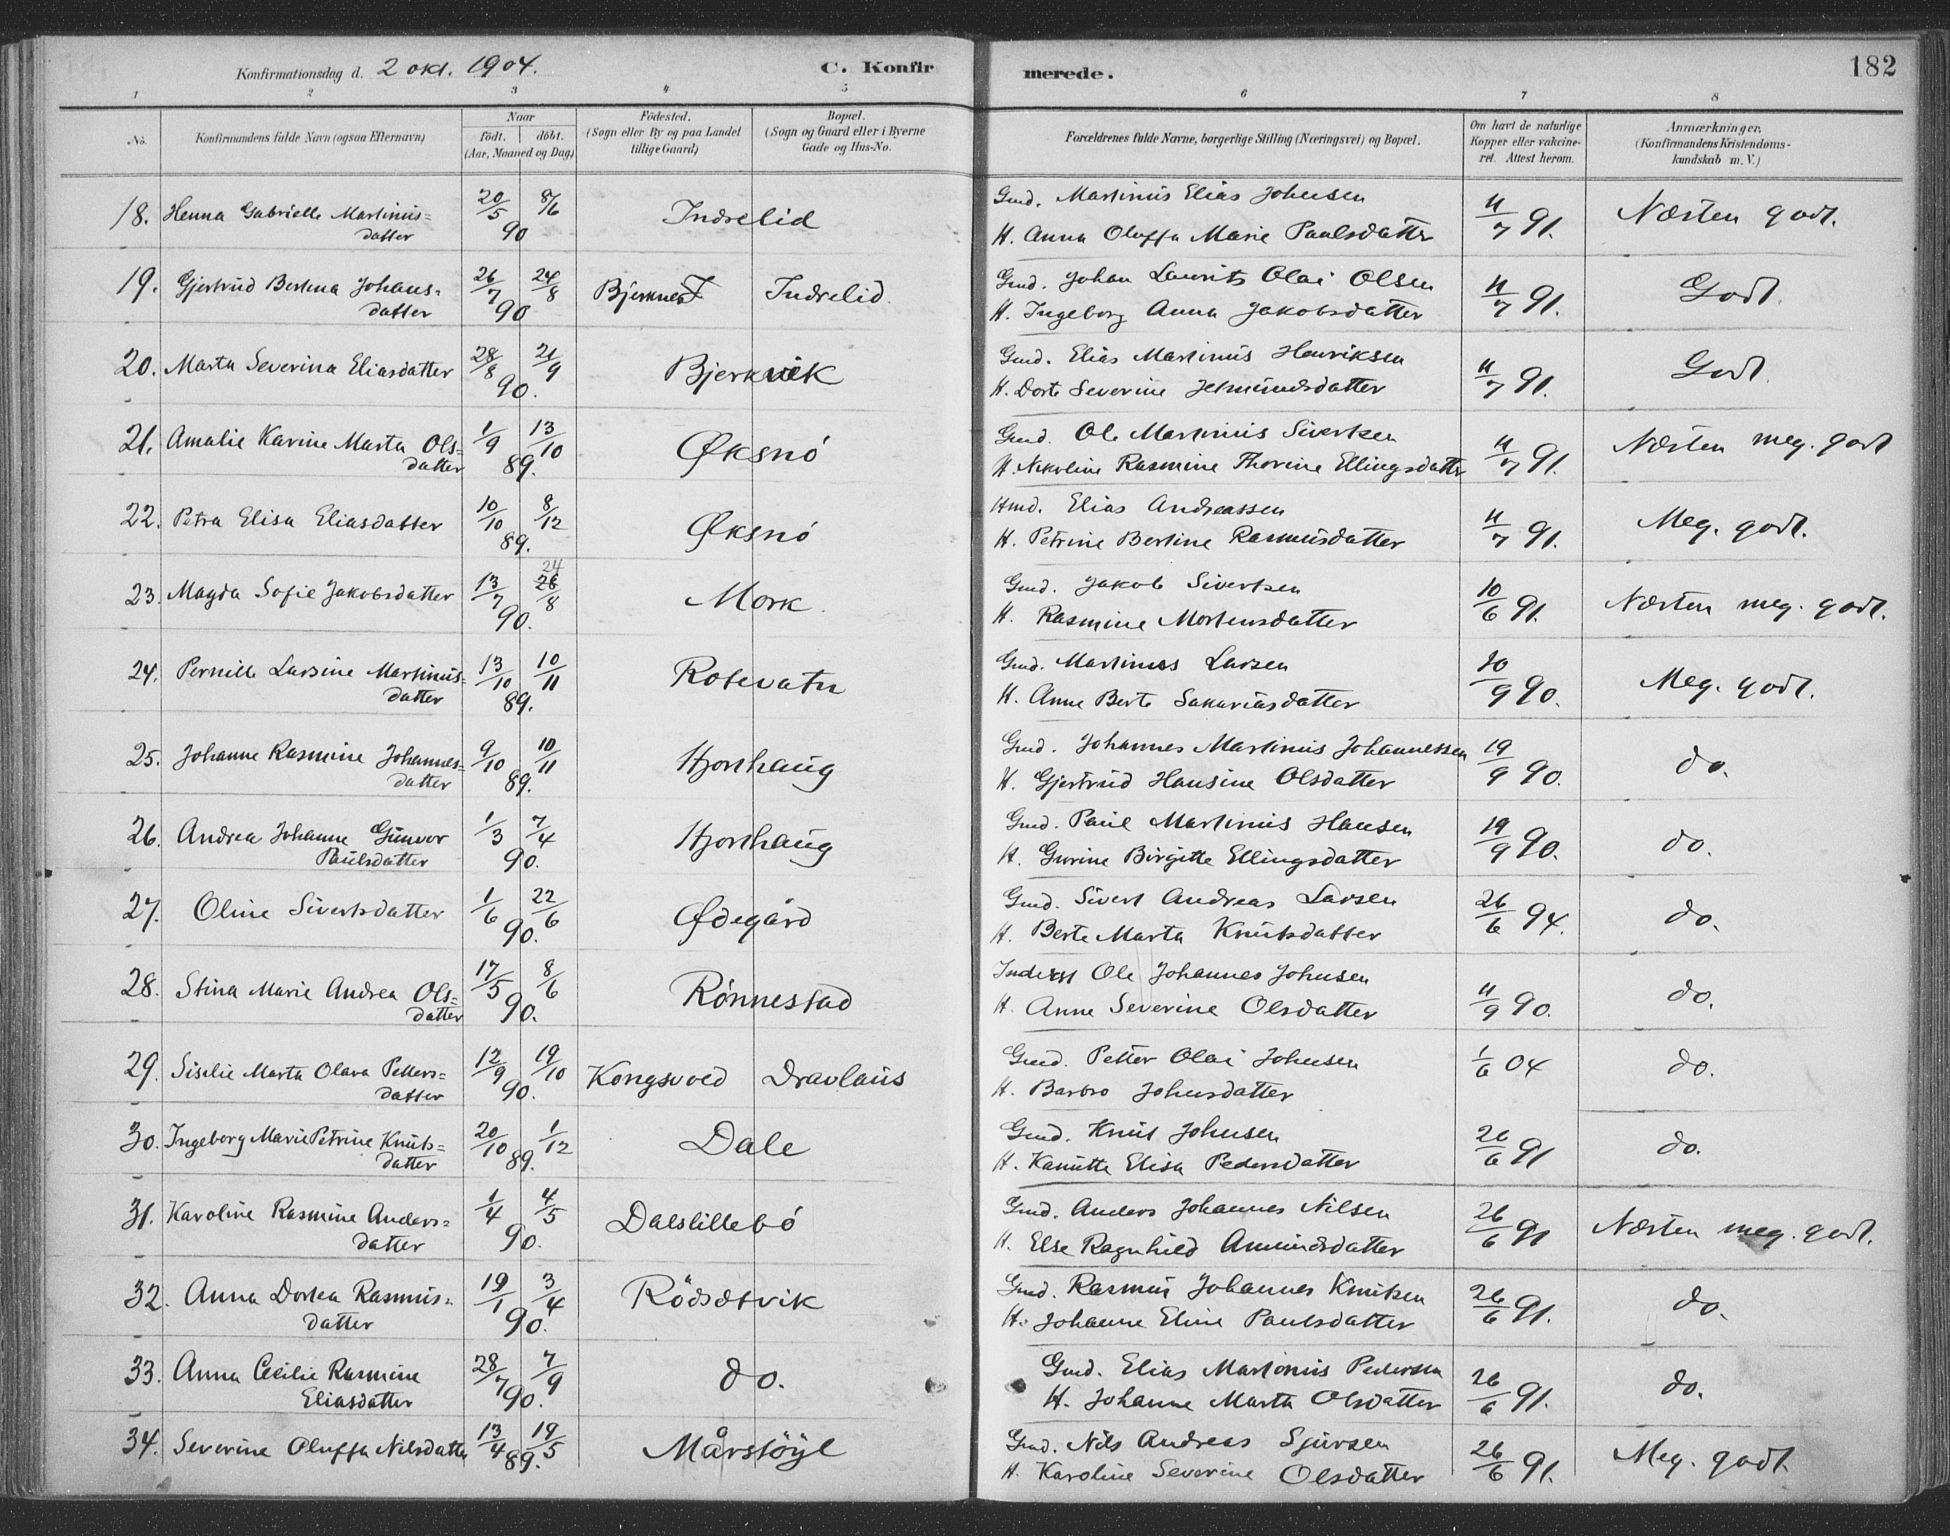 Konfirmationsdag d. 2 okt. 1904.
C. Konfir
merede.
182
1 2 3 4 5 6 7 8
No. Konfirmandens fulde Navn (ogsaa Efternavn) Naar födt. döbt. (Aar, Maaned og Dag) Födested. (Sogn eller By og paa Landet tillige Gaard) Bopæl. (Sogn og Gaard eller i Byerne Gade og Hus-No. Forældrenes fulde Navne, borgerlige Stilling (Næringsvei) og Bopæl. Om havt de naturlige Kopper eller vakcineret. Attest herom. Anmærkninger, (Konfirmandens Kristendomskundskab m. V.)
18. Henna Gabrielle Martinus= 20/5 8/6 Indrelid Gmd. Martinus Elias Johnsen 11/7 91. Næsten godt.
datter 90 H. Anna Oluffa Marie Paulsdatter
19. Gjertrud Bertina Johans= 26/7 24/8 Bjerknes Indrelid. Gmd. Johan Laurits Olai Olsen 11/7 91. Godt.
datter 90 H. Ingeborg Anna Jakobsdatter
20. Marta Severina Eliasdatter 28/8 21/9 Bjerkvik Gmd. Elias Martinus Henriksen 11/7 91. Godt.
90. H. Dorte Severine Jetmundsdatter
21. Amalie Karine Marta Ols= 1/9 13/10 Øksnö Gmd. Ole Martinus Sivertsen 11/7 91. Næsten meg. godt
datter 89. H. Nikoline Rasmine Thorine Ellingsdatter
22. Petra Elisa Eliasdatter 10/10 8/12 Øksnö Hmd. Elias Andreassen 11/7 91. Meg. godt.
89. H. Petrine Bertine Rasmusdatter
23. Magda Sofie Jakobsdatter 13/7 24/8 Mork. Gmd. Jakob Sivertsen 10/6 91. Næsten meg. godt.
90. H. Rasmine Mortensdatter
24. Pernille Larsine Martinus= 13/10 10/11 Rotevatn Gmd. Martinus Larsen /9 90. Meg. godt.
datter 89. H. Anne Berte Sakariasdatter
25. Johanne Rasmine Johannes= 9/10 10/11 Hjorthaug Gmd. Johannes Martinus Johannessen 19/9 90. do.
datter 89. H. Gjertrud Hansine Olsdatter
26. Andrea Johanne Gunvor 1/3 7/4 Hjorthaug Gmd. Paul Martinus Hansen 19/9 90. do.
Paulsdatter 90. H. Gurine Birgitte Ellingsdatter
27. Oline Sivertsdatter 1/6 22/6 Ødegård Gmd. Sivert Andreas Larsen 26/6 94. do.
90. H. Berte Marta Knutsdatter
28. Stina Marie Andrea Ols= 17/5 8/6 Rönnestad Inderst Ole Johannes Johnsen 11/9 90. do.
datter 90. H. Anne Severine Olsdatter
29. Siselie Marta Olava Petters= 12/9 19/10 Kongsvold Dravlaus Gmd. Petter Olai Johnsen 1/6 04 do.
datter 90. H. Barbro Johnsdatter
30. Ingeborg Marie Petrine Knuts= 20/10 1/12 Dale Gmd. Knut Johnsen 26/6 91 do.
datter 89. H. Kanutte Elisa Pedersdatter
31. Karoline Rasmine Anders= 1/4 4/5 Dalslillebö Gmd. Anders Johannes Nilsen 26/6 91 Næsten meg. godt.
datter 90. H. Else Ragnhild Amundsdatter
32. Anna Dortea Rasmus= 19/1 3/4 Rödsetvik Gmd. Rasmus Johannes Knutsen 26/6 91. do.
datter 90. H. Johanne Eline Paulsdatter
33. Anna Cecilie Rasmine 28/7 7/9 do. Gmd. Elias Martinus Pedersen 26/6 91. do.
Eliasdatter 90. H. Johanne Marta Olsdatter
34. Severine Oluffa Nilsdatter 13/4 19/5 Mårstöyl Gmd. Nils Andreas Sjursen 26/6 91. Meg. godt.
89. H. Karoline Severine Olsdatter